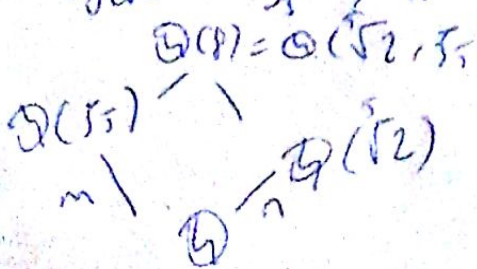 Q(β) = Q(⁵√2, ζ₅
Q(ζ₅)
Q(⁵√2)
m
n
Q